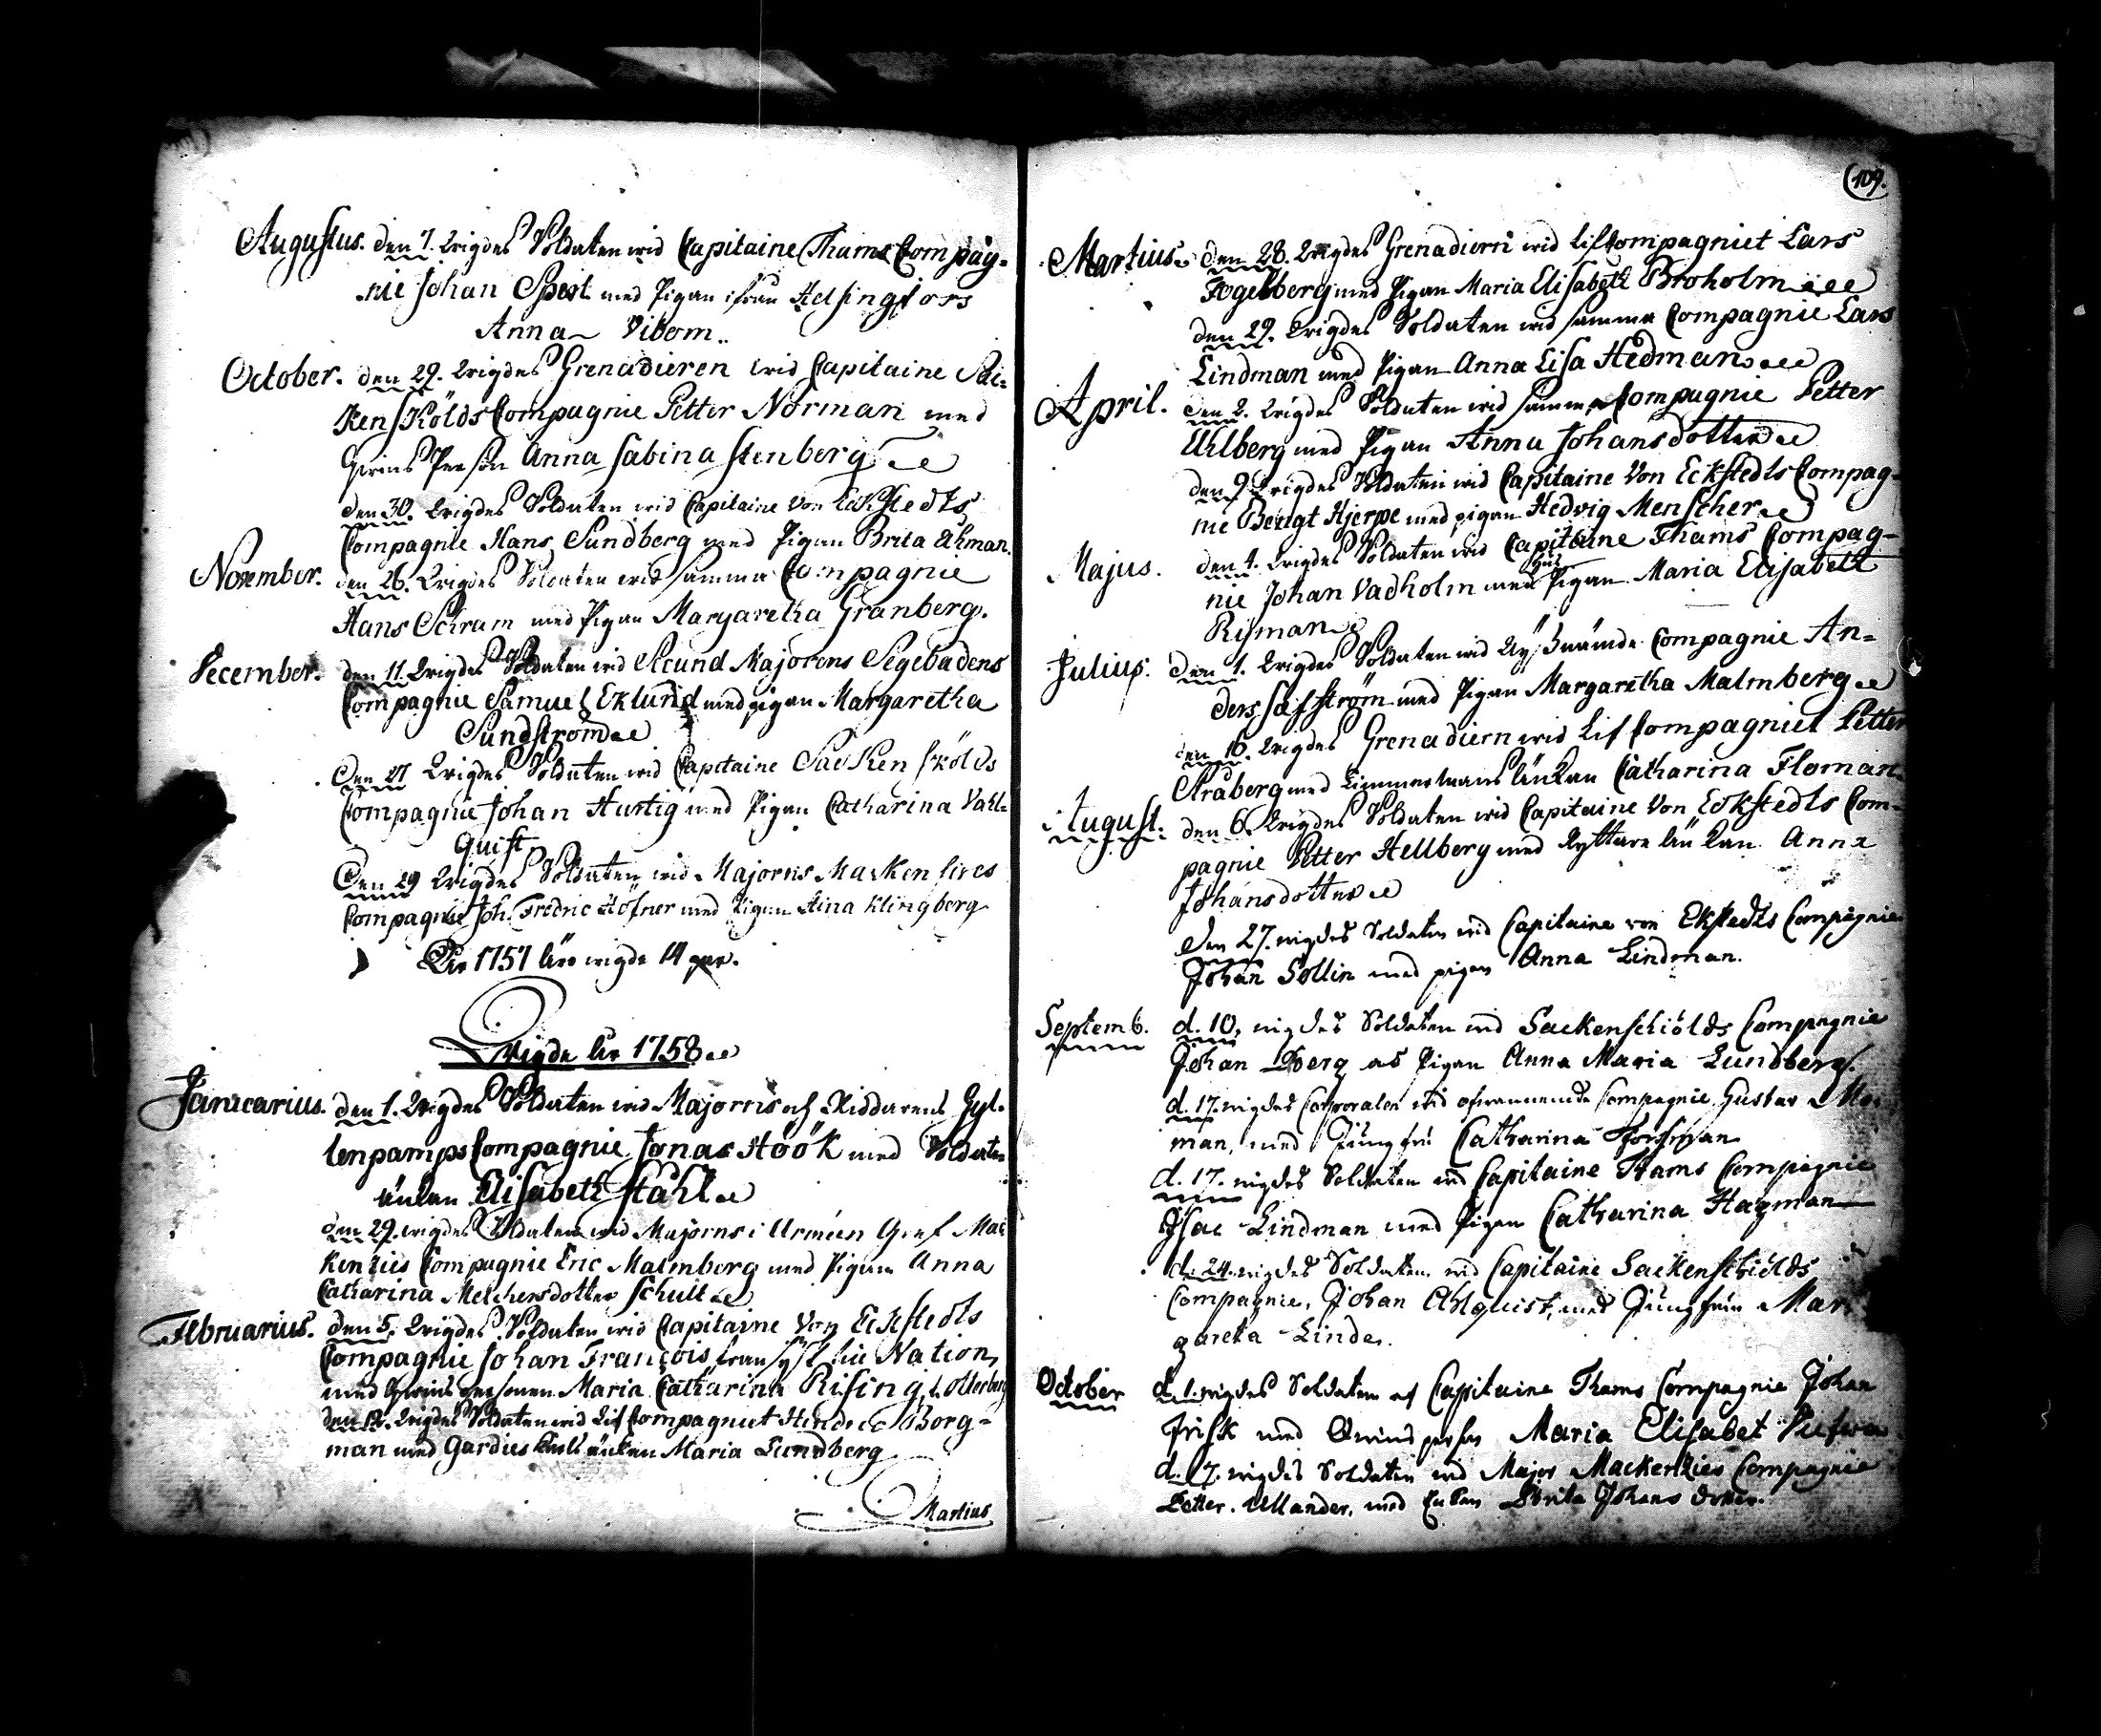 Augustus. den 7. Wigdes Soldaten wid Capitaine Thams Compag-
nie Johan Spest med Pigan ifrån Helsingfors
Anna Vibom..
October. den 29. Wigdes Grenadieren wid Capitaine Sac-
kenskölds Compagnie Petter Norman med
Qwins Person Anna Sabina Stenberg
den 30. Wigdes Soldaten wid Capitaine Von Eckstedts
Compagnie Hans Sundberg med Pigan Brita Åhman.
November. den 26. Wigdes Soldaten wid samma Compagnie
Hans Schram med Pigan Margaretha Granberg.
December. den 11. Wigdes Soldaten wid Secund Majorens Segebadens
Compagnie Samuel Eklund med pigan Margaretha
Sundström
Den 27 Wigdes Soldaten wid Capitaine Sackenskölds
Compagnie Johan Hurtig med Pigan Catharina Vahl-
quist
Den 29 Wigdes Soldaten wid Majorns Mackensies
Compagnie Joh. Fredric Höfner med Pigan Stina Klingberg
År 1757 äro wigde 14 par.
Wigde År 1758
Januarius. den 1. Wigdes Soldaten wid Majorns och Riddarens Gyl-
lenpamps Compagnie Jonas Höök med Soldate
änkan Elisabeth Ståhl
den 29. wigdes Soldaten wid Majorns i Arméen Gref Mac
kenzies Compagnie Eric Malmberg med Pigan Anna
Catharina Melchersdotter Schult
Februarius. den 5. Wigdes Soldaten wid Capitaine Von Eckstedts
Compagnie Johan François, fransyst till Nation,
med Qwins personen Maria Catharina Rising,
den 12. Wigdes Soldaten wid Lif Compagniet Borg-
man med Gardies änkan Maria Lundberg
Martius
109.
Martius. den 28. Wigdes Grenadiern wid Lif Compagniet Lars
Fogelberg med Pigan Maria Elisabeth Broholm
den 29. Wigdes Soldaten wid samma Compagnie Lars
Lindman med Pigan Anna Lisa Hedman
April. den 2. Wigdes Soldaten wid samma Compagnie Petter
Uhlberg med Pigan Anna Johansdotter
den 9 Wigdes Soldaten wid Capitaine Von Eckstedts Compag-
nie Bengt Hjerpe med pigan Hedvig Menscher
Majus. den 1. Wigdes Soldaten wid Capitaine Thams Compag-
nie Johan Vadholm med Pigan Maria Elisabeth
Risman
Julius. den 1. Wigdes Soldaten wid Nysnämde Compagnie An-
ders Säfström med Pigan Margaretha Malmberg
den 16. Wigdes Grenadiern wid Lif Compagniet Petter
Stråberg med Timmermans änkan Catharina Floman
August. den 6. Wigdes Soldaten wid Capitaine Von Eckstedts Com-
pagnie Petter Hellberg med Ryttare änkan Anna
Johansdotter
den 27. wigdes Soldaten wid Capitaine von Ekstedts Compagnie
Johan Sollin med pigan Anna Lindman.
Septemb. d. 10. wigdes Soldaten wid Sackenschiölds Compagnie
Johan Åberg as Pigan Anna Maria Lundberg.
d. 17. wigdes Corporalen wid ofwannemde Compagnie, Gustav
man, med Jungfru Catharina Forsman
d. 17. wigdes Soldaten wid Capitaine Thams Compagnie
Isac Lindman med Pigan Catharina Hagman
d. 24. wigdes Soldaten wid Capitaine Sackenschiölds
Compagnie, Johan Ahlquist, med Jungfrun Mar
gareta Linde.
October d. 1. wigdes Soldaten af Capitaine Thams Compagnie Johan
Frisk med Qwins person Maria Elisabet
d. 17. wigdes Soldaten wid Major Mackenzies Compagnie
Petter Ullander, med Enkan Brita Johans dotter.